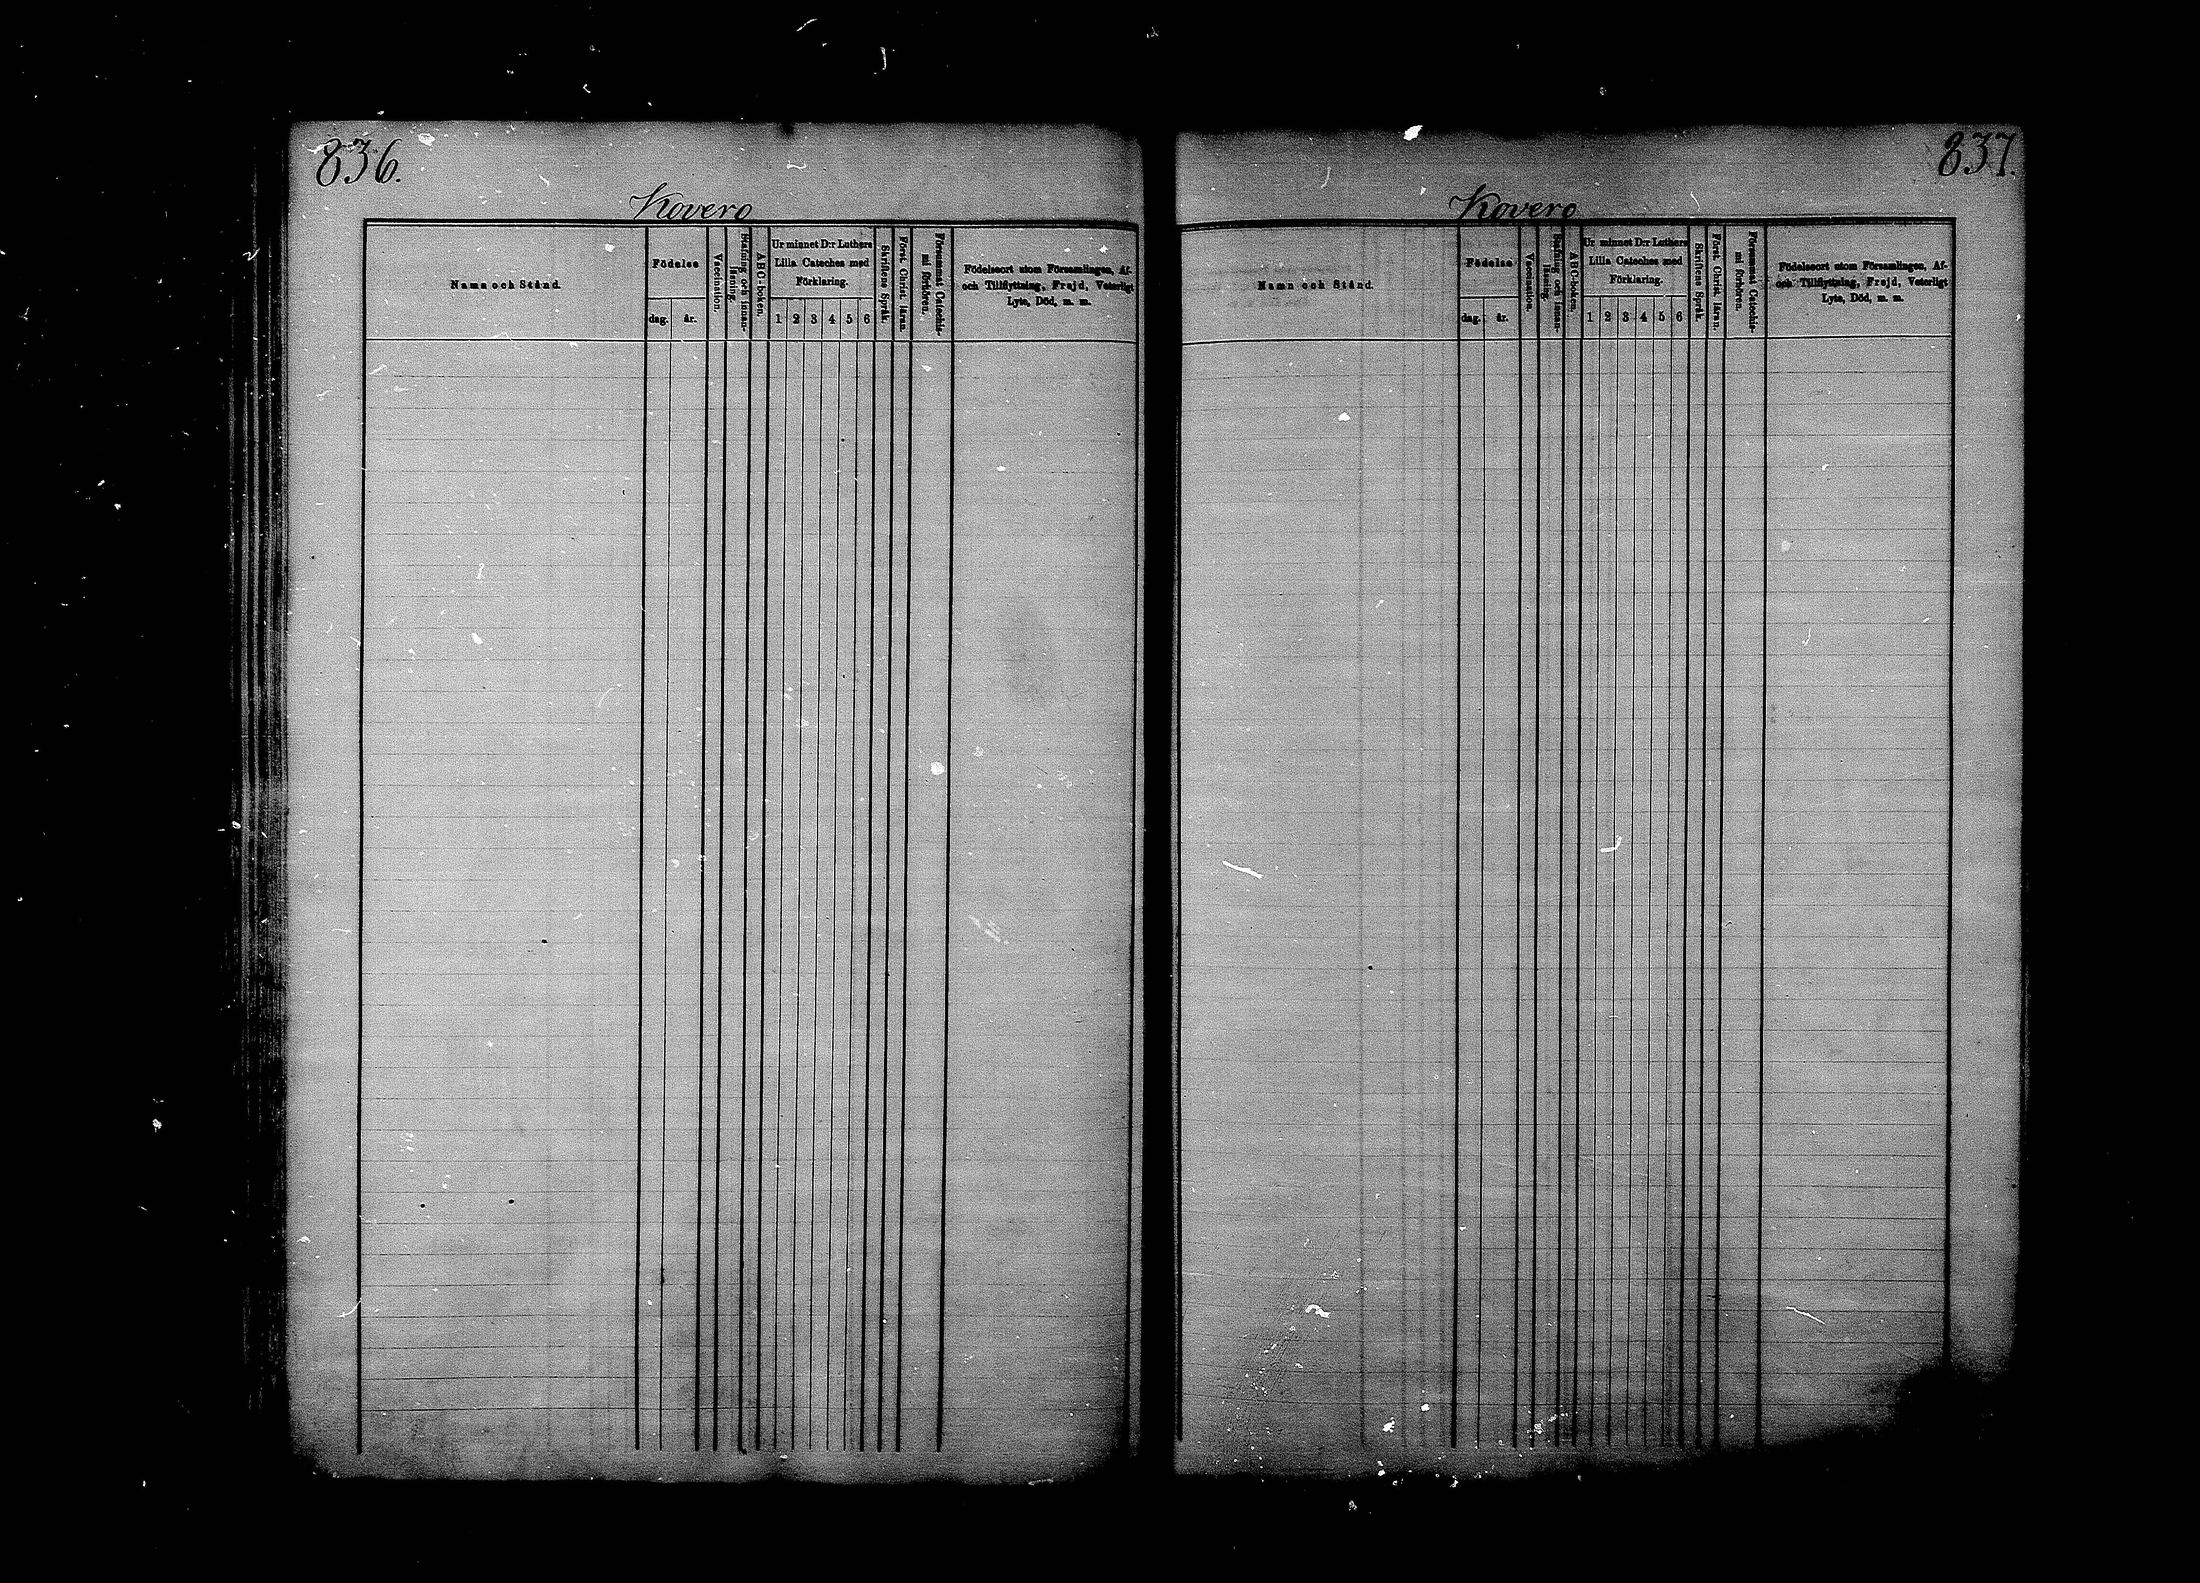 836.
Kovero
Namn och Stånd.
Födelse
dag. år.
Vaccination.
Stafning och innan-
läsning.
A B C-boken.
Ur minnet D:r Luthers
Lilla Cateches med
Förklaring.
1 2 3 4 5 6
Skriftens Språk.
Först. Christ. läran.
Försummat Catechis-
mi förhören.
Födelseort utom Församlingen, Af-
och Tillflyttning, Frejd, Veterligt
Lyte, Död, m. m.
837.
Kovero
Namn och Stånd.
Födelse
dag. år.
Vaccination.
Stafning och innan-
läsning.
A B C-boken.
Ur minnet D:r Luthers
Lilla Cateches med
Förklaring.
1 2 3 4 5 6
Skriftens Språk.
Först. Christ. läran.
Försummat Catechis-
mi förhören.
Födelseort utom Församlingen, Af-
och Tillflyttning, Frejd, Veterligt
Lyte, Död, m. m.